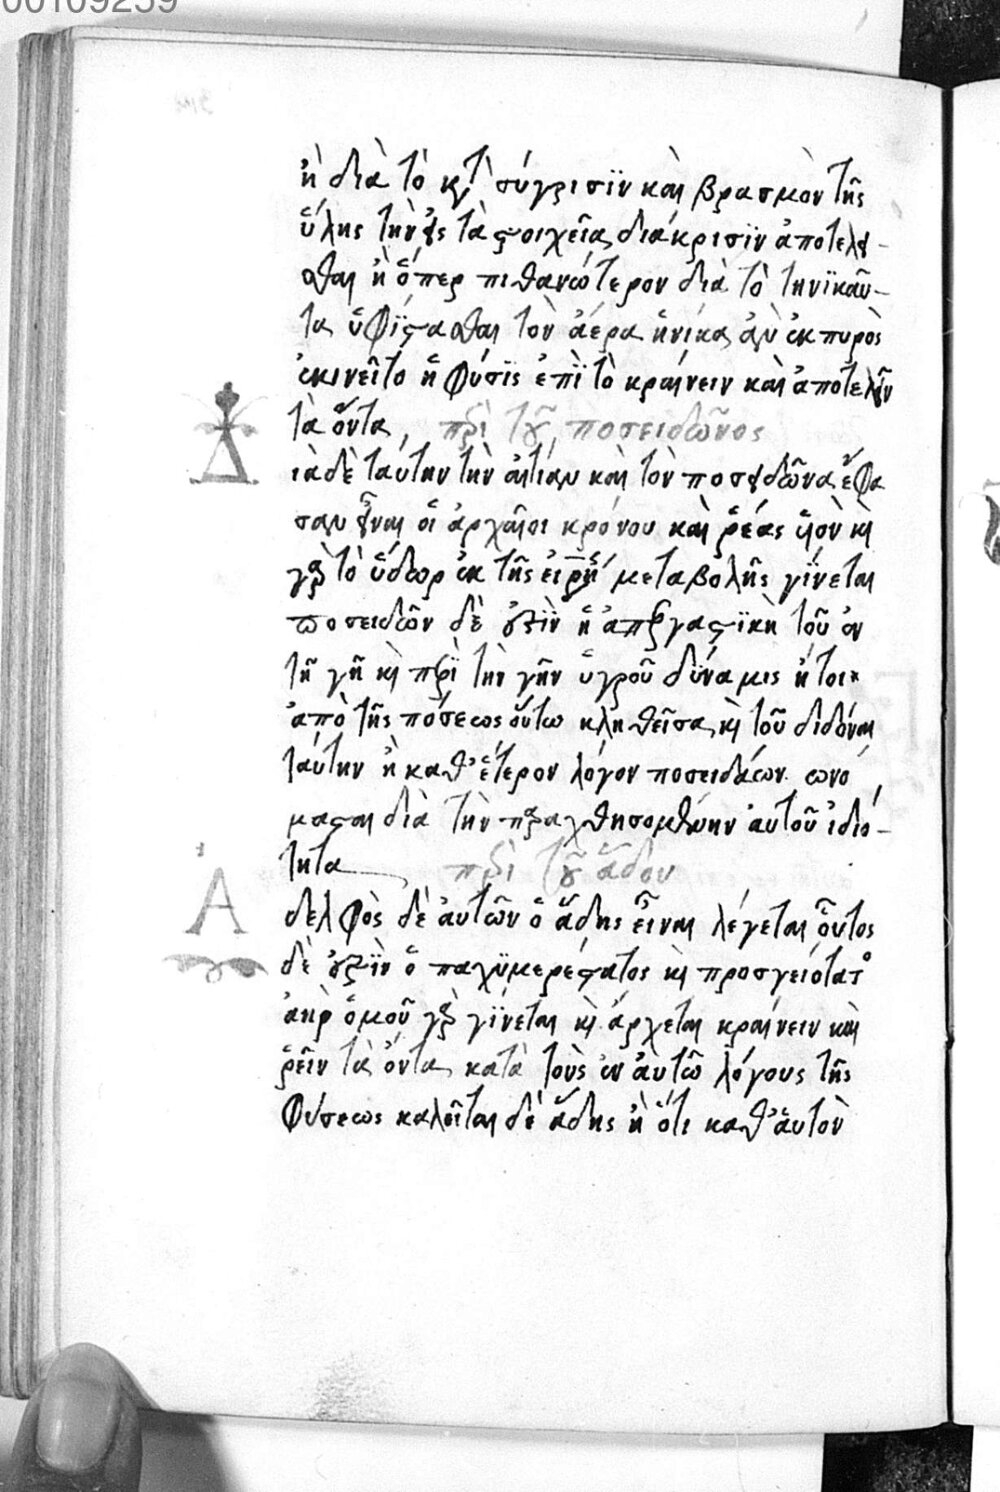 00109259
ἢ διὰ τὸ κατὰ σύγκρισϊν καὶ βρασμὸν τῆς
ὕλης τὴν εἰς τὰ στοιχεῖα διάκρισϊν ἀποτελεῖ-
σθαι ἢ ὅπερ πιθανώτερον διὰ τὸ τηνϊκαῦ-
τα ὑφίστασθαι τὸν ἀέρα ἡνίκα ἂν ἐκ πυρὸς
ἐκινεῖτο ἡ φύσϊς ἐπὶ τὸ κραίνειν καὶ ἀποτελεῖν
τὰ ὄντα, περὶ τοῦ ποσειδῶνος
Διὰ δὲ ταύτην τὴν αἰτίαν καὶ τὸν ποσειδῶνα ἔφα
σαν εἶναι οἱ ἀρχαῖοι κρόνου καὶ ῥέας υἱὸν καὶ
γὰρ τὸ ὕδωρ ἐκ τῆς εἰρημένης μεταβολῆς γίνεται
ποσειδῶν δὲ ἐστὶν ἡ ἀπεργαστϊκὴ τοῦ ἐν
τῇ γῇ καὶ περὶ τὴν γῆν ὑγροῦ δύναμις ἤτοι
ἀπὸ τῆς πόσεως οὕτω κληθεῖσα καὶ τοῦ διδόναι
ταύτην ἢ καθ' ἕτερον λόγον ποσειδάων ὠνό
μασται διὰ τὴν παραχθησομένην αὐτοῦ ἰδιό-
τητα περὶ τοῦ ἅδου
Ἀδελφὸς δὲ αὐτῶν ὁ ἅδης εἶναι λέγεται οὗτος
δὲ ἐστὶν ὁ παχϋμερέστατος καὶ προσγειότατος
ἀὴρ ὁμοῦ γὰρ γίνεται καὶ ἄρχεται κραίνειν καὶ
ῥεῖν τὰ ὄντα κατὰ τοὺς ἐν αὐτῷ λόγους τῆς
φύσεως καλεῖται δὲ ἅδης ἢ ὅτι καθ' αὑτὸν